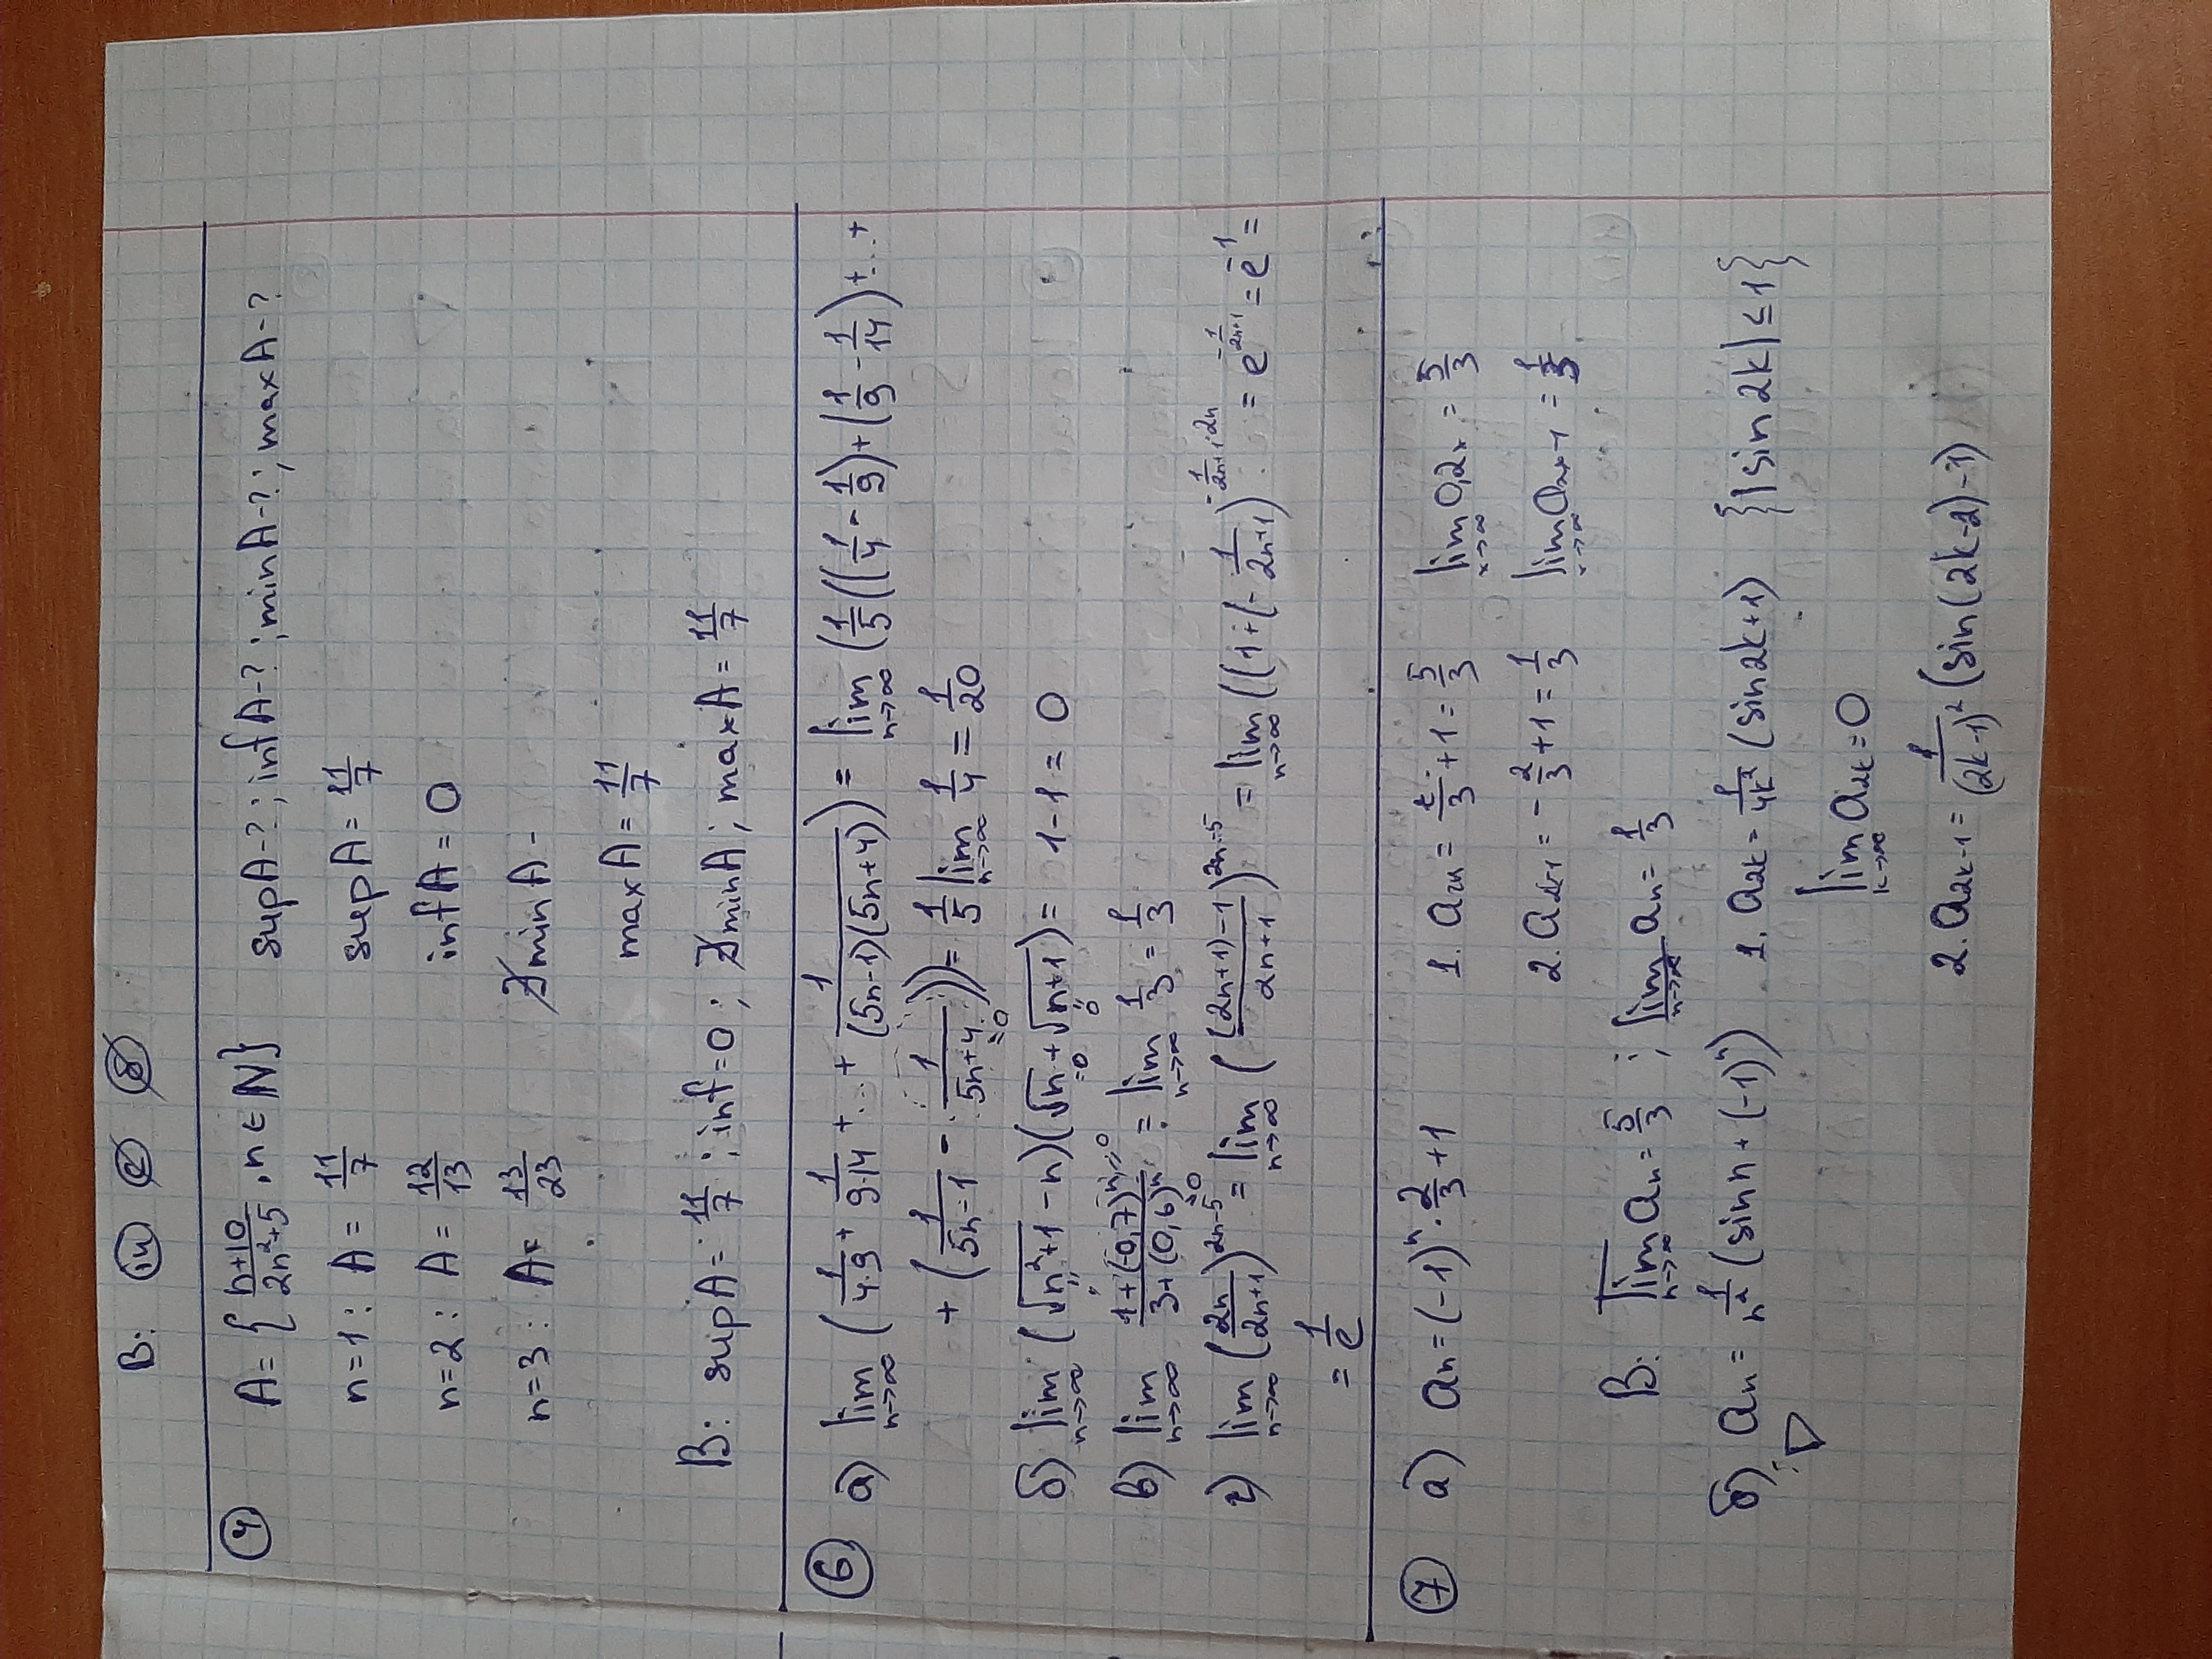 В: (in) (c) (б)
(4) A = { (n+10)/(2n²+5), n ∈ N} supA-?; infA-?; minA-?; maxA-?
n=1: A = 11/7 supA = 11/7
n=2: A = 12/13 infA = 0
n=3: A = 13/23 ∄minA -
maxA = 11/7
В: supA = 11/7; inf = 0; ∄minA; maxA = 11/7
(6) а) lim n→∞ (1/(4·9) + 1/(9·14) + ... + 1/((5n-1)(5n+4))) = lim n→∞ (1/5((1/4 - 1/9) + (1/9 - 1/14) + ... +
+ (1/(5n-1) - 1/(5n+4) =0)) = 1/5 lim n→∞ 1/4 = 1/20
б) lim n→∞ (√(n²+1) - n)(√n =0 + √(n+1) =0) = 1-1 = 0
в) lim n→∞ (1+(-0,7)ⁿ =0)/(3+(0,6)ⁿ =0) = lim n→∞ 1/3 = 1/3
г) lim n→∞ (2n/(2n+1))^(2n-5) = lim n→∞ (((2n+1)-1)/(2n+1))^(2n-5) = lim n→∞ ((1+(-1/(2n+1))^(-1/(2n+1)·2n) = e^(-1/(2n+1)) = e^(-1) =
= 1/e
(7) а) aₙ = (-1)ⁿ · 2/3 + 1 1. a₂ₙ = 2/3 + 1 = 5/3 lim x→∞ a₂ₓ = 5/3
2. a₂ₖ₋₁ = -2/3 + 1 = 1/3 lim x→∞ a₂ₓ₋₁ = 1/3
В: lim̅ n→∞ aₙ = 5/3; lim̲ n→∞ aₙ = 1/3
б) aₙ = 1/n² (sin n + (-1)ⁿ) 1. a₂ₖ = 1/4k² (sin 2k + 1) {|sin 2k| ≤ 1}
lim k→∞ a₂ₖ = 0
2. a₂ₖ₋₁ = 1/(2k-1)² (sin(2k-2) - 1)